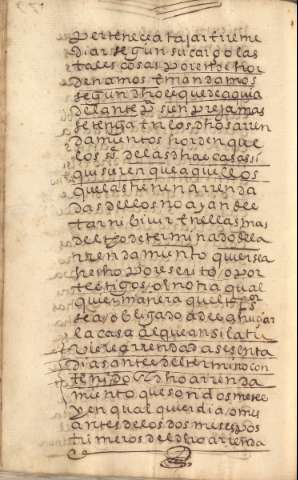 pertenecia tajar e reme
diar segun su cargo las
tales cosas por ende hor
denamos e mandamos
segun dho es que de aqui a
delante por sienpre jamas
se tenga en los dhos arren
damientos horden que
los s.es de las dhas casas si
quisieren que aquellos
que las tienen arrenda
das dellos no ayan de es
tar ni bivir en ellas mas
del tpo determinado de la
rrendamiento quier sea
hecho por escrito o por
testigos o otra qual
quier manera que el tal
sea obligado a desahuciar
la casa al que ansi la tu
viere arrendada sesenta
dias antes del termino con
tenido en el dho arrenda
miento que son dos meses
y en qualquier dia o mes
antes de los dos meses pos
trimeros del dho arrenda